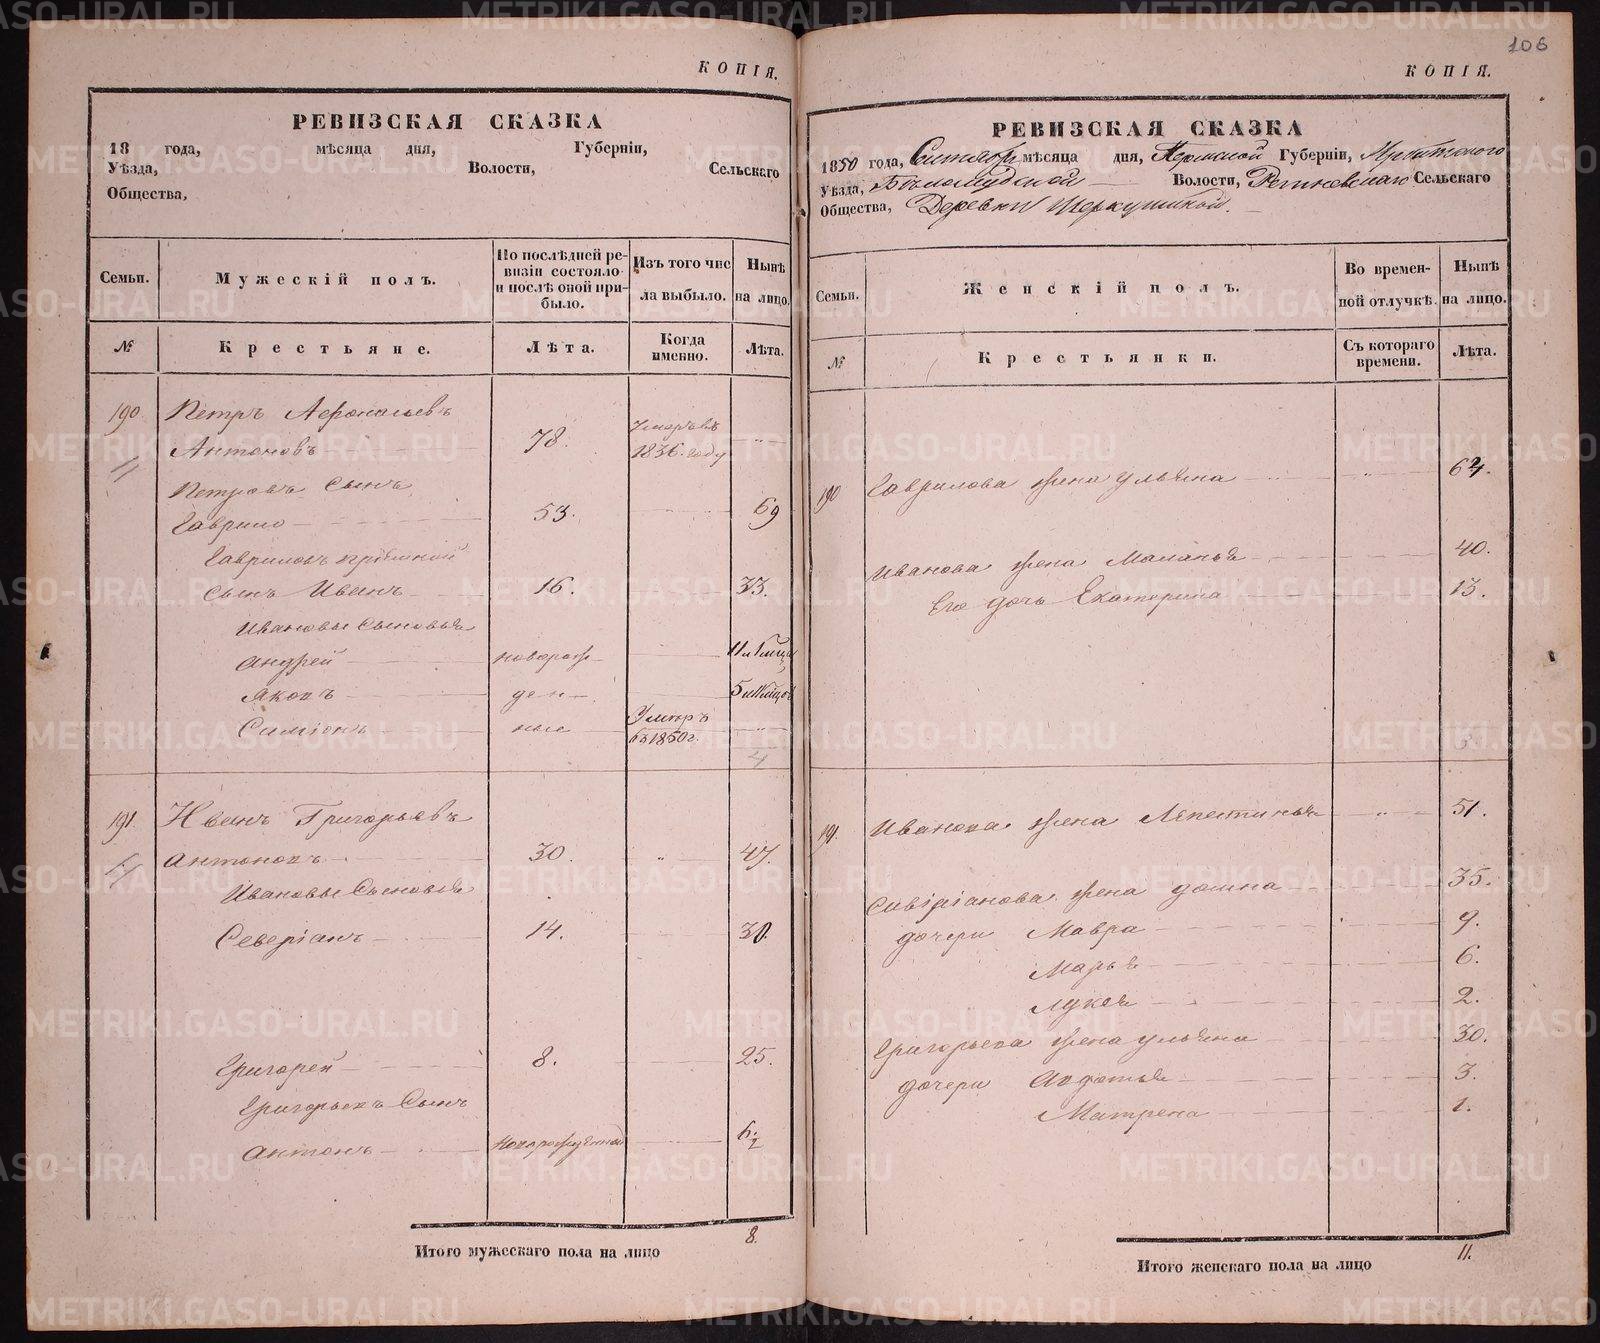 106
КОПІЯ.
РЕВИЗСКАЯ СКАЗКА
18 года, мѣсяца дня, Губерніи,
Уѣзда, Волости, Сельскаго
Общества,
Семьи. Мужескій полъ. По послѣдней ревизіи состояло и послѣ оной прибыло. Изъ того числа выбыло. Нынѣ на лицо.
№ Крестьяне. Лѣта. Когда именно. Лѣта.
190 Петръ Афонасьевъ
Антоновъ 78. Умеръ въ 1836. году
Петровъ сынъ
Гаврило 53. 69
Гавриловъ пріемной
сынъ Иванъ 16. 33.
Ивановы сыновья
Андрей новорож 11
Яковъ ден 5
Симіонъ ные Умеръ въ 1850 г.
4
191. Иванъ Григорьевъ
Антоновъ 30. „ 47.
Ивановы Сыновья
Северіанъ 14. 30.
Григорей 8. 25.
Григорьевъ Сынъ
Антонъ Новорожденной
8.
Итого мужескаго пола на лицо
КОПІЯ.
РЕВИЗСКАЯ СКАЗКА
1850 года, мѣсяца дня, Пермской Губерніи, Ирбитского
Уѣзда, Бѣлослудской Волости, Сельскаго
Общества, Деревни
Семьи. Женскій полъ. Во временной отлучкѣ. Нынѣ на лицо.
№ Крестьянки. Съ котораго времени. Лѣта.
190 Гаврилова жена Ульяна
Иванова жена Маланья 40.
Его дочь Екатерина 13.
3
191. Иванова жена 51.
Сивіріанова жена Домна 35.
дочери Мавра 9.
Марья 6.
Лукея 2.
Григорьева жена Ульяна 30.
дочери Авдотья 3.
Матрена 1.
11.
Итого женскаго пола на лицо
METRIKI.GASO-URAL.RU